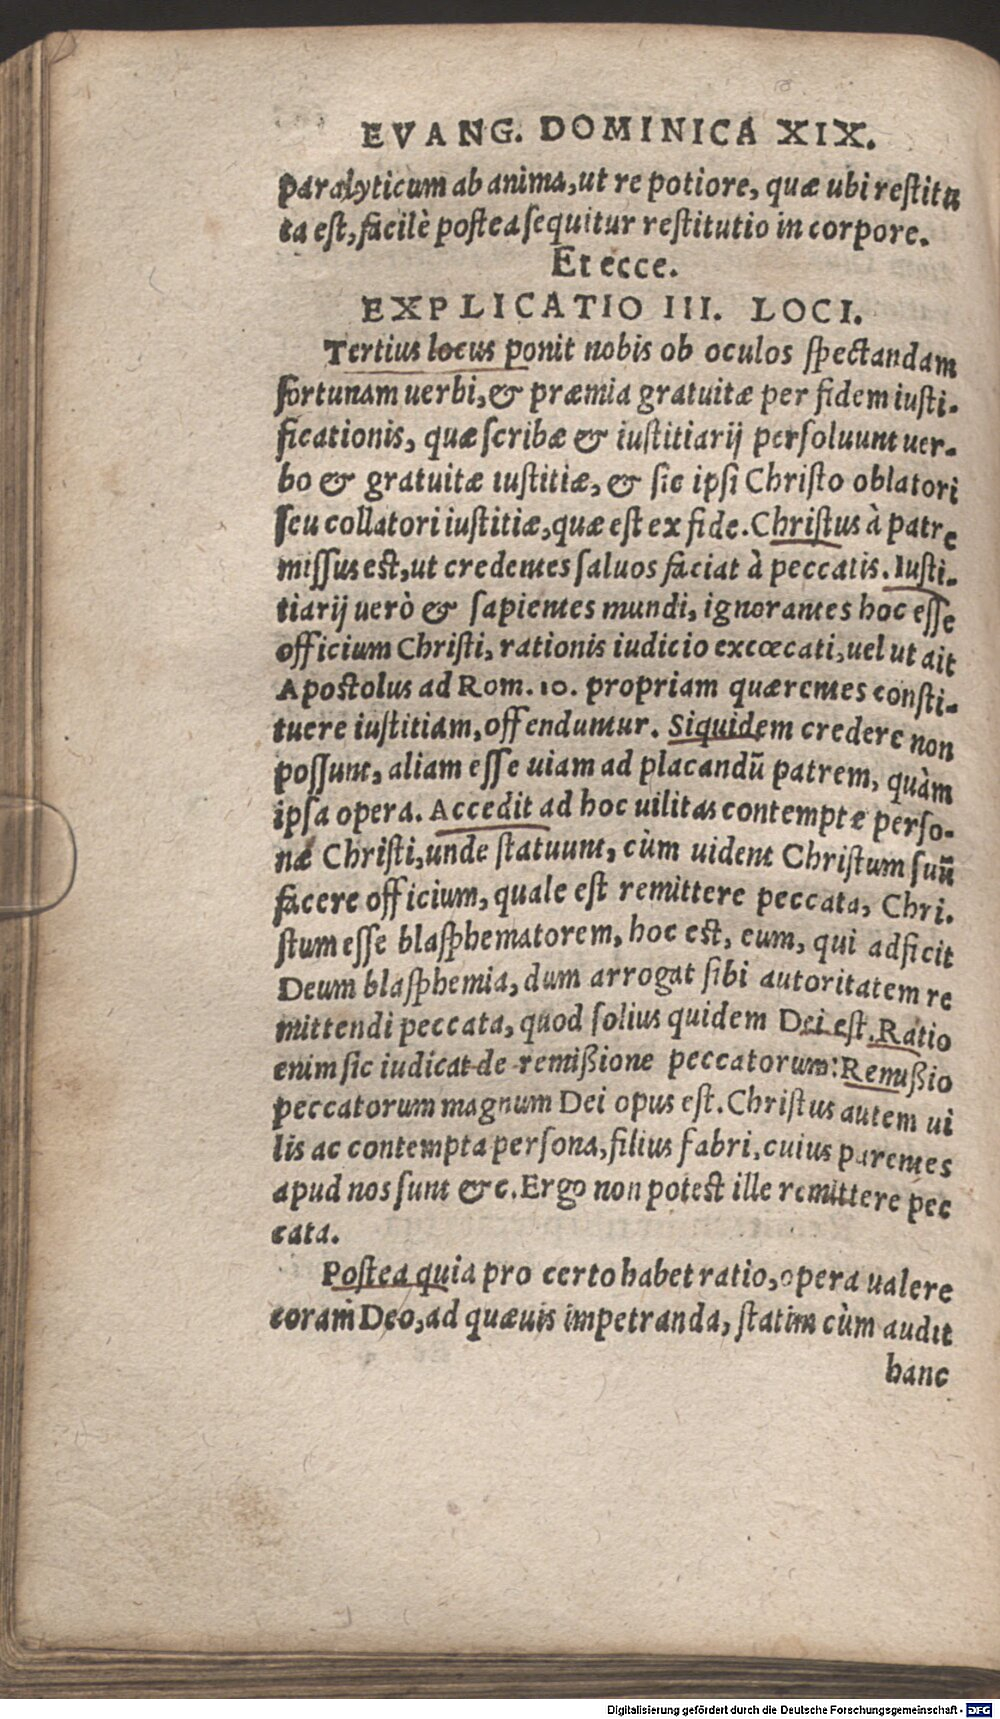 EVANG. DOMINICA XIX.
paralyticum ab anima, ut re potiore, quæ ubi restitu
ta est, facilè postea sequitur restitutio in corpore.
Et ecce.
EXPLICATIO III. LOCI.
Tertius locus ponit nobis ob oculos spectandam
fortunam uerbi, & præmia gratuitæ per fidem iusti-
ficationis, quæ scribæ & iustitiarij persoluunt uer-
bo & gratuitæ iustitiæ, & sic ipsi Christo oblatori
seu collatori iustitiæ, quæ est ex fide. Christus à patre
missus est, ut credentes saluos faciat à peccatis. Iusti-
tiarij uerò & sapientes mundi, ignorantes hoc esse
officium Christi, rationis iudicio excœcati, uel ut ait
Apostolus ad Rom. 10. propriam quærentes consti-
tuere iustitiam, offenduntur. Siquidem credere non
possunt, aliam esse uiam ad placandũ patrem, quàm
ipsa opera. Accedit ad hoc uilitas contemptæ perso-
næ Christi, unde statuunt, cùm uident Christum suũ
facere officium, quale est remittere peccata, Chri-
stum esse blasphematorem, hoc est, eum, qui adficit
Deum blasphemia, dum arrogat sibi autoritatem re
mittendi peccata, quod solius quidem Dei est. Ratio
enim sic iudicat de remißione peccatorum: Remißio
peccatorum magnum Dei opus est. Christus autem ui
lis ac contempta persona, filius fabri, cuius parentes
apud nos sunt &c. Ergo non potest ille remittere pec
cata.
Postea quia pro certo habet ratio, opera ualere
coram Deo, ad quæuis impetranda, statim cùm audit
hanc
Digitalisierung gefördert durch die Deutsche Forschungsgemeinschaft - DFG